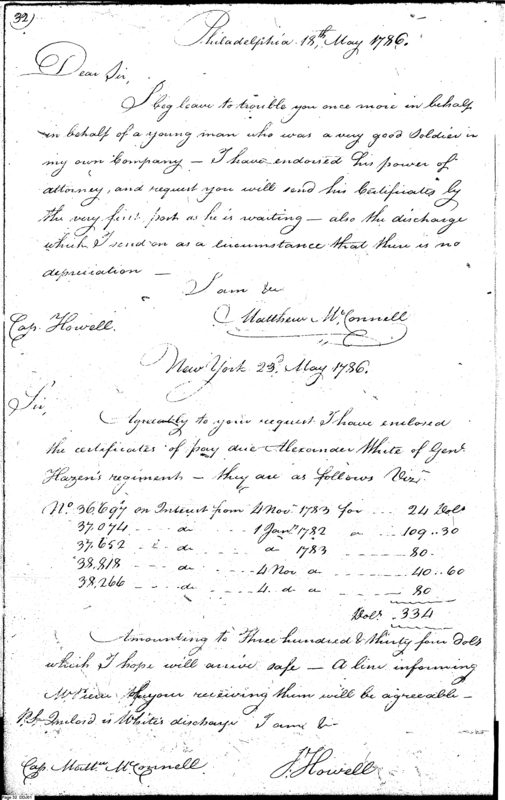 32)
Philadelphia 18th May 1786.
Dear Sir,
I beg leave to trouble you once more in behalf
in behalf of a young man who was a very good Soldier in
my own Company – I have endorsed his power of
attorney, and request you will send his Certificates by
the very first post as he is waiting – also the discharge
which I send on as a circumstance that there is no
depreciation –
I am &c
Matthew McConnell
Cap. Howell.
New York 23d May 1786.
Sir,
Agreeably to your request I have enclosed
the certificates of pay due Alexander White of Genl
Hazen's regiment – they are as follows Vizt
No. 36.697 on Interest from 4 Nov. 1783 for ... 24 Dols
37.074 - - - do - - 1 Jany 1782 - - - 109..30
37.652 - - - do - - do 1783 - - - 80.
38.818 - - - do - - 4 Nov do - - - 40..60
38.266 - - - do - - 4. do do - - - 80
Dols. 334
Amounting to Three hundred & thirty four Dols
which I hope will arrive safe – A line informing
your receiving them will be agreeable –
P.S. Inclosd is White's discharge I am &c
Cap. Matthw McConnell. J. Howell
Page 32